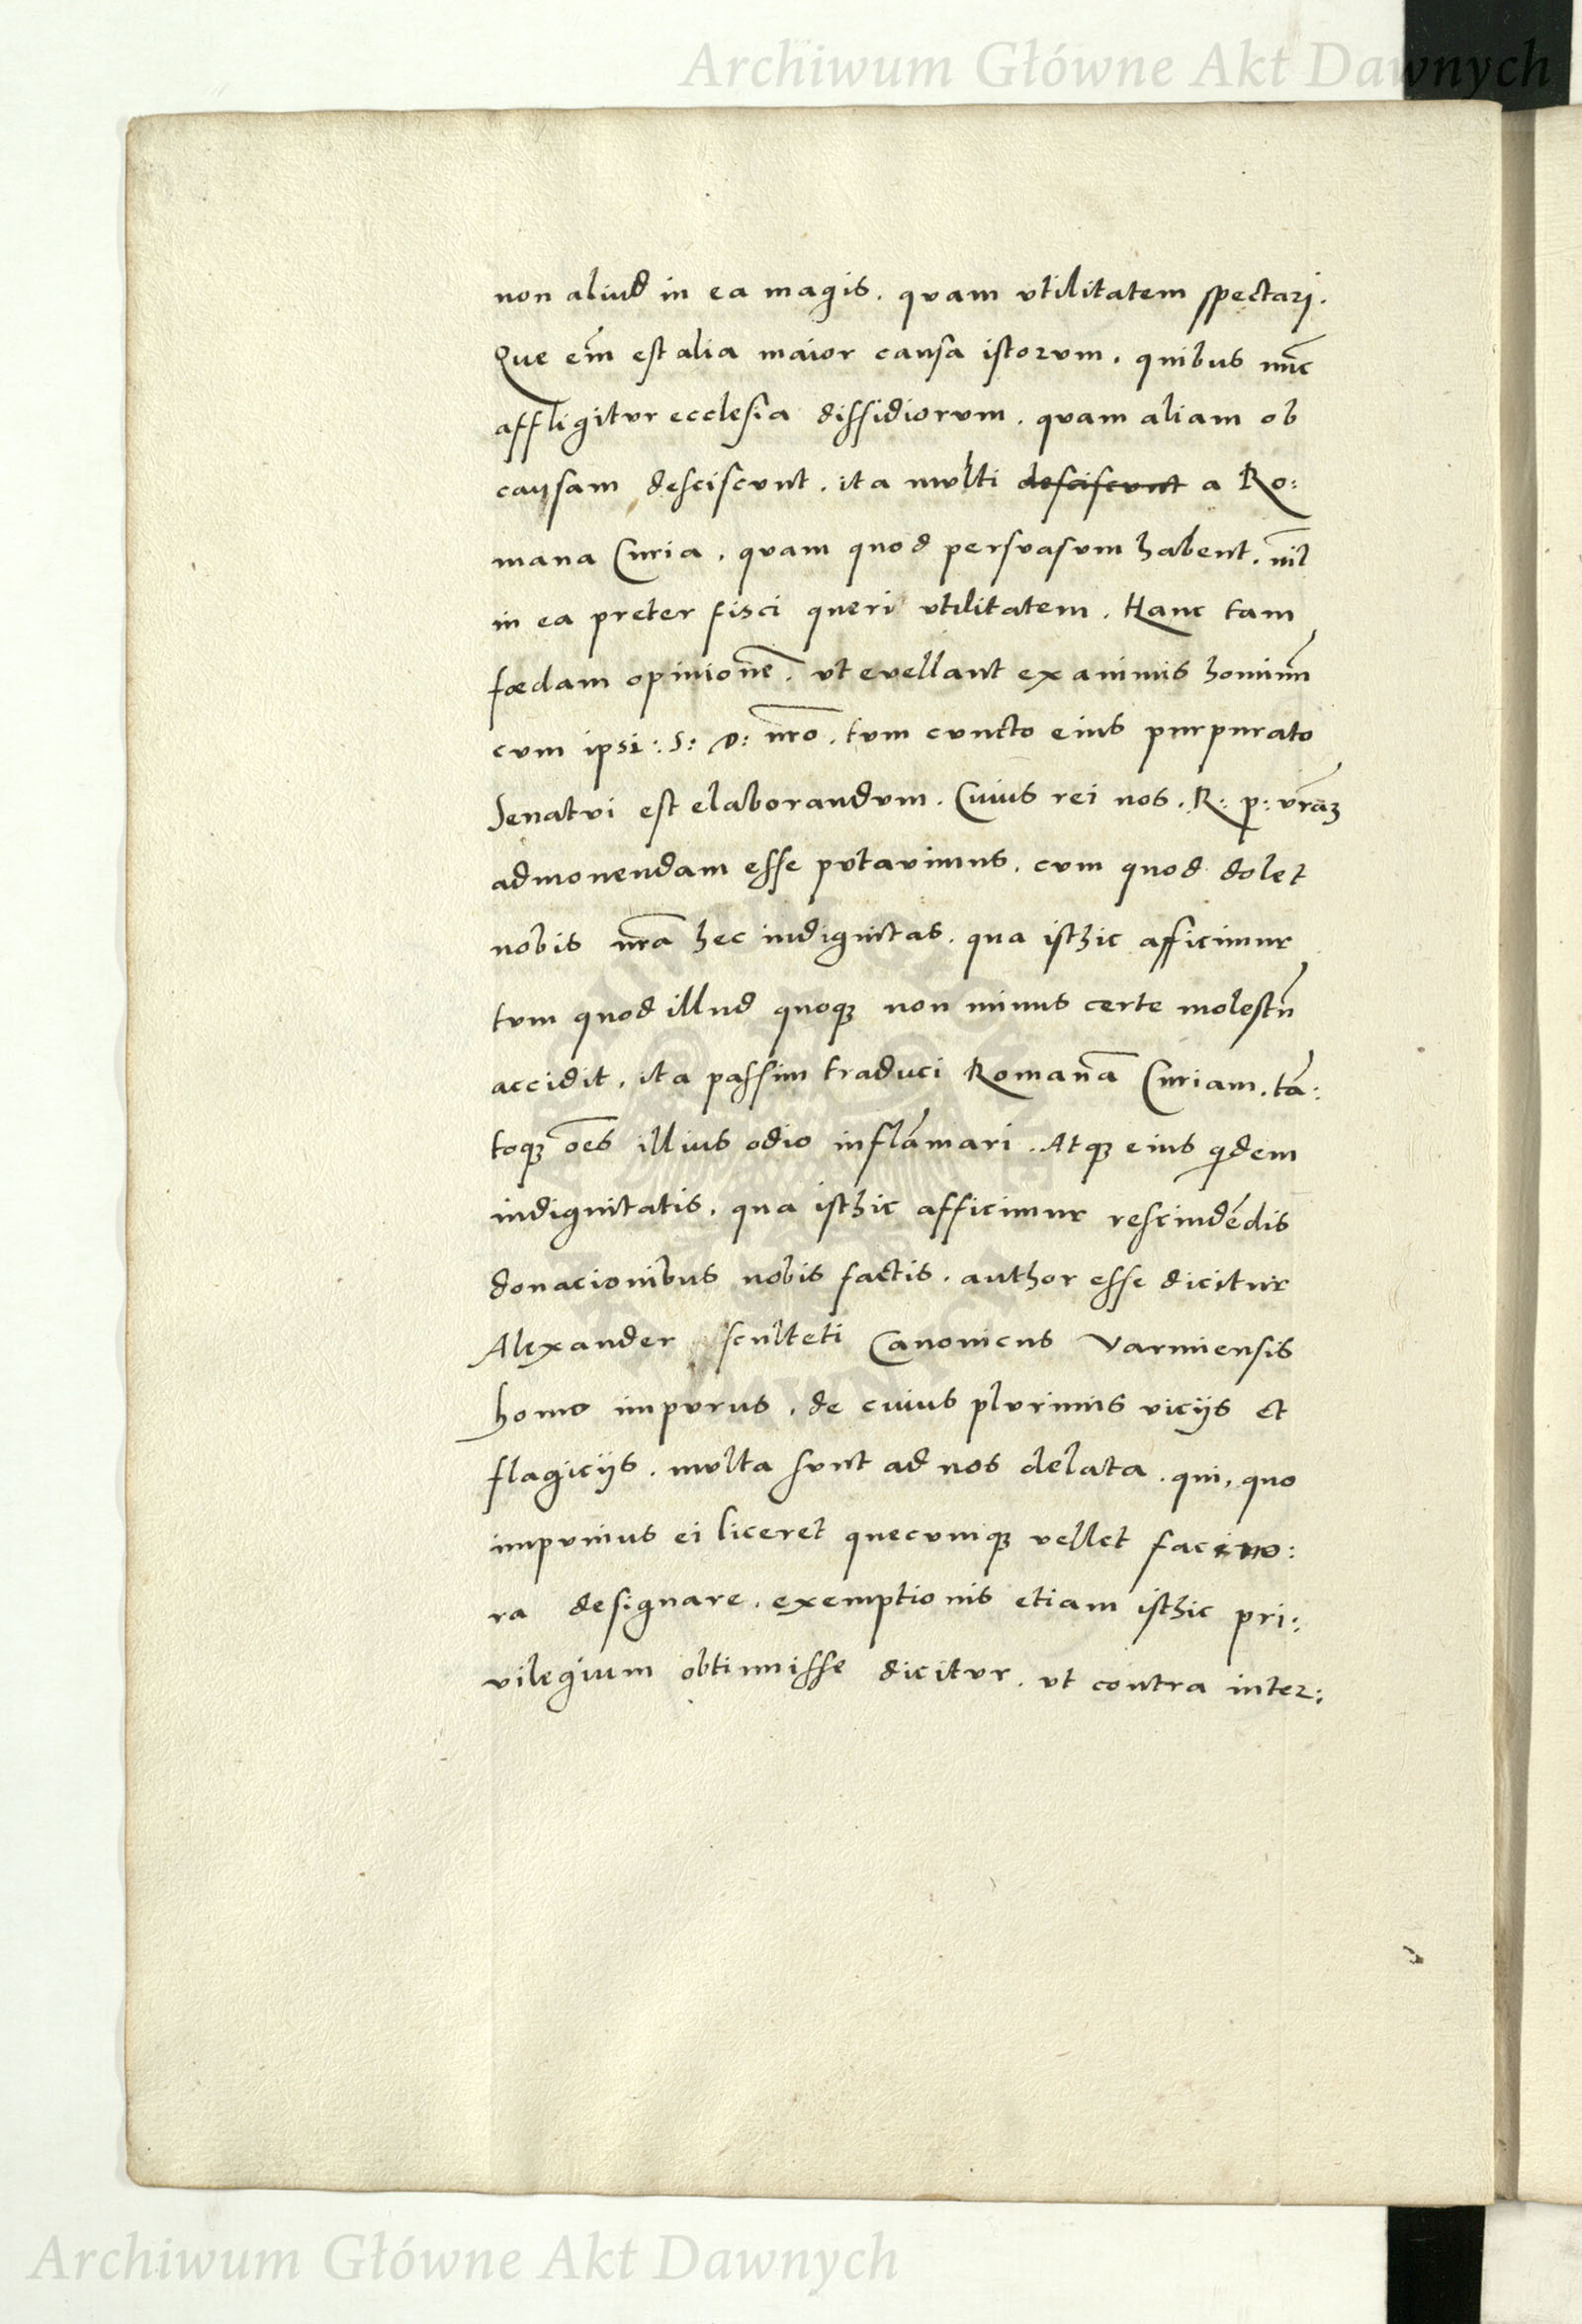 Archiwum Główne Akt Dawnych
non aliud in ea magis. quam vtilitatem spectari.
Que em̃ est alia maior causa istorum. quibus nũc
affligitur ecclesia dissidiorum. quam aliam ob
causam desciscunt. ita multi desciscunt a Ro:
mana Curia. quam quod persuasum habent. nil̃
in ea preter fisci queri vtilitatem. Hanc tam
fœdam opinionẽ. vt euellant ex animis hominũ
cum ipsi: S: D: nr̃o. tum cuncto eius purpurato
Senatui est elaborandum. Cuius rei nos. R: p: vr̃aʒ
admonendam esse putauimus. cum quod dolet
nobis nr̃a hec indignitas. qua isthic afficimur
tum quod illud quoqʒ non minus certe molestũ
accidit. ita passim traduci Romanã Curiam. tã:
toqʒ oẽs illius odio inflãmari. Atqʒ eius qdem
indignitatis. qua isthic afficimur rescindẽdis
donacionibus nobis factis. author esse dicitur
Alexander sculteti Canonicus Varmiensis
homo impurus. de cuius plurimis vicijs et
flagicijs. multa sunt ad nos delata. qui, quo
impunius ei liceret quecunqʒ vellet facino:
ra designare. exemptionis etiam isthic pri:
uilegium obtinuisse dicitur. vt contra inter:
Archiwum Główne Akt Dawnych